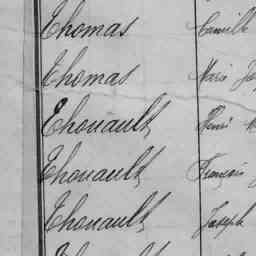 Thomas Camille
Thomas Marie
Thouault Henri
Thouault François
Thouault Joseph